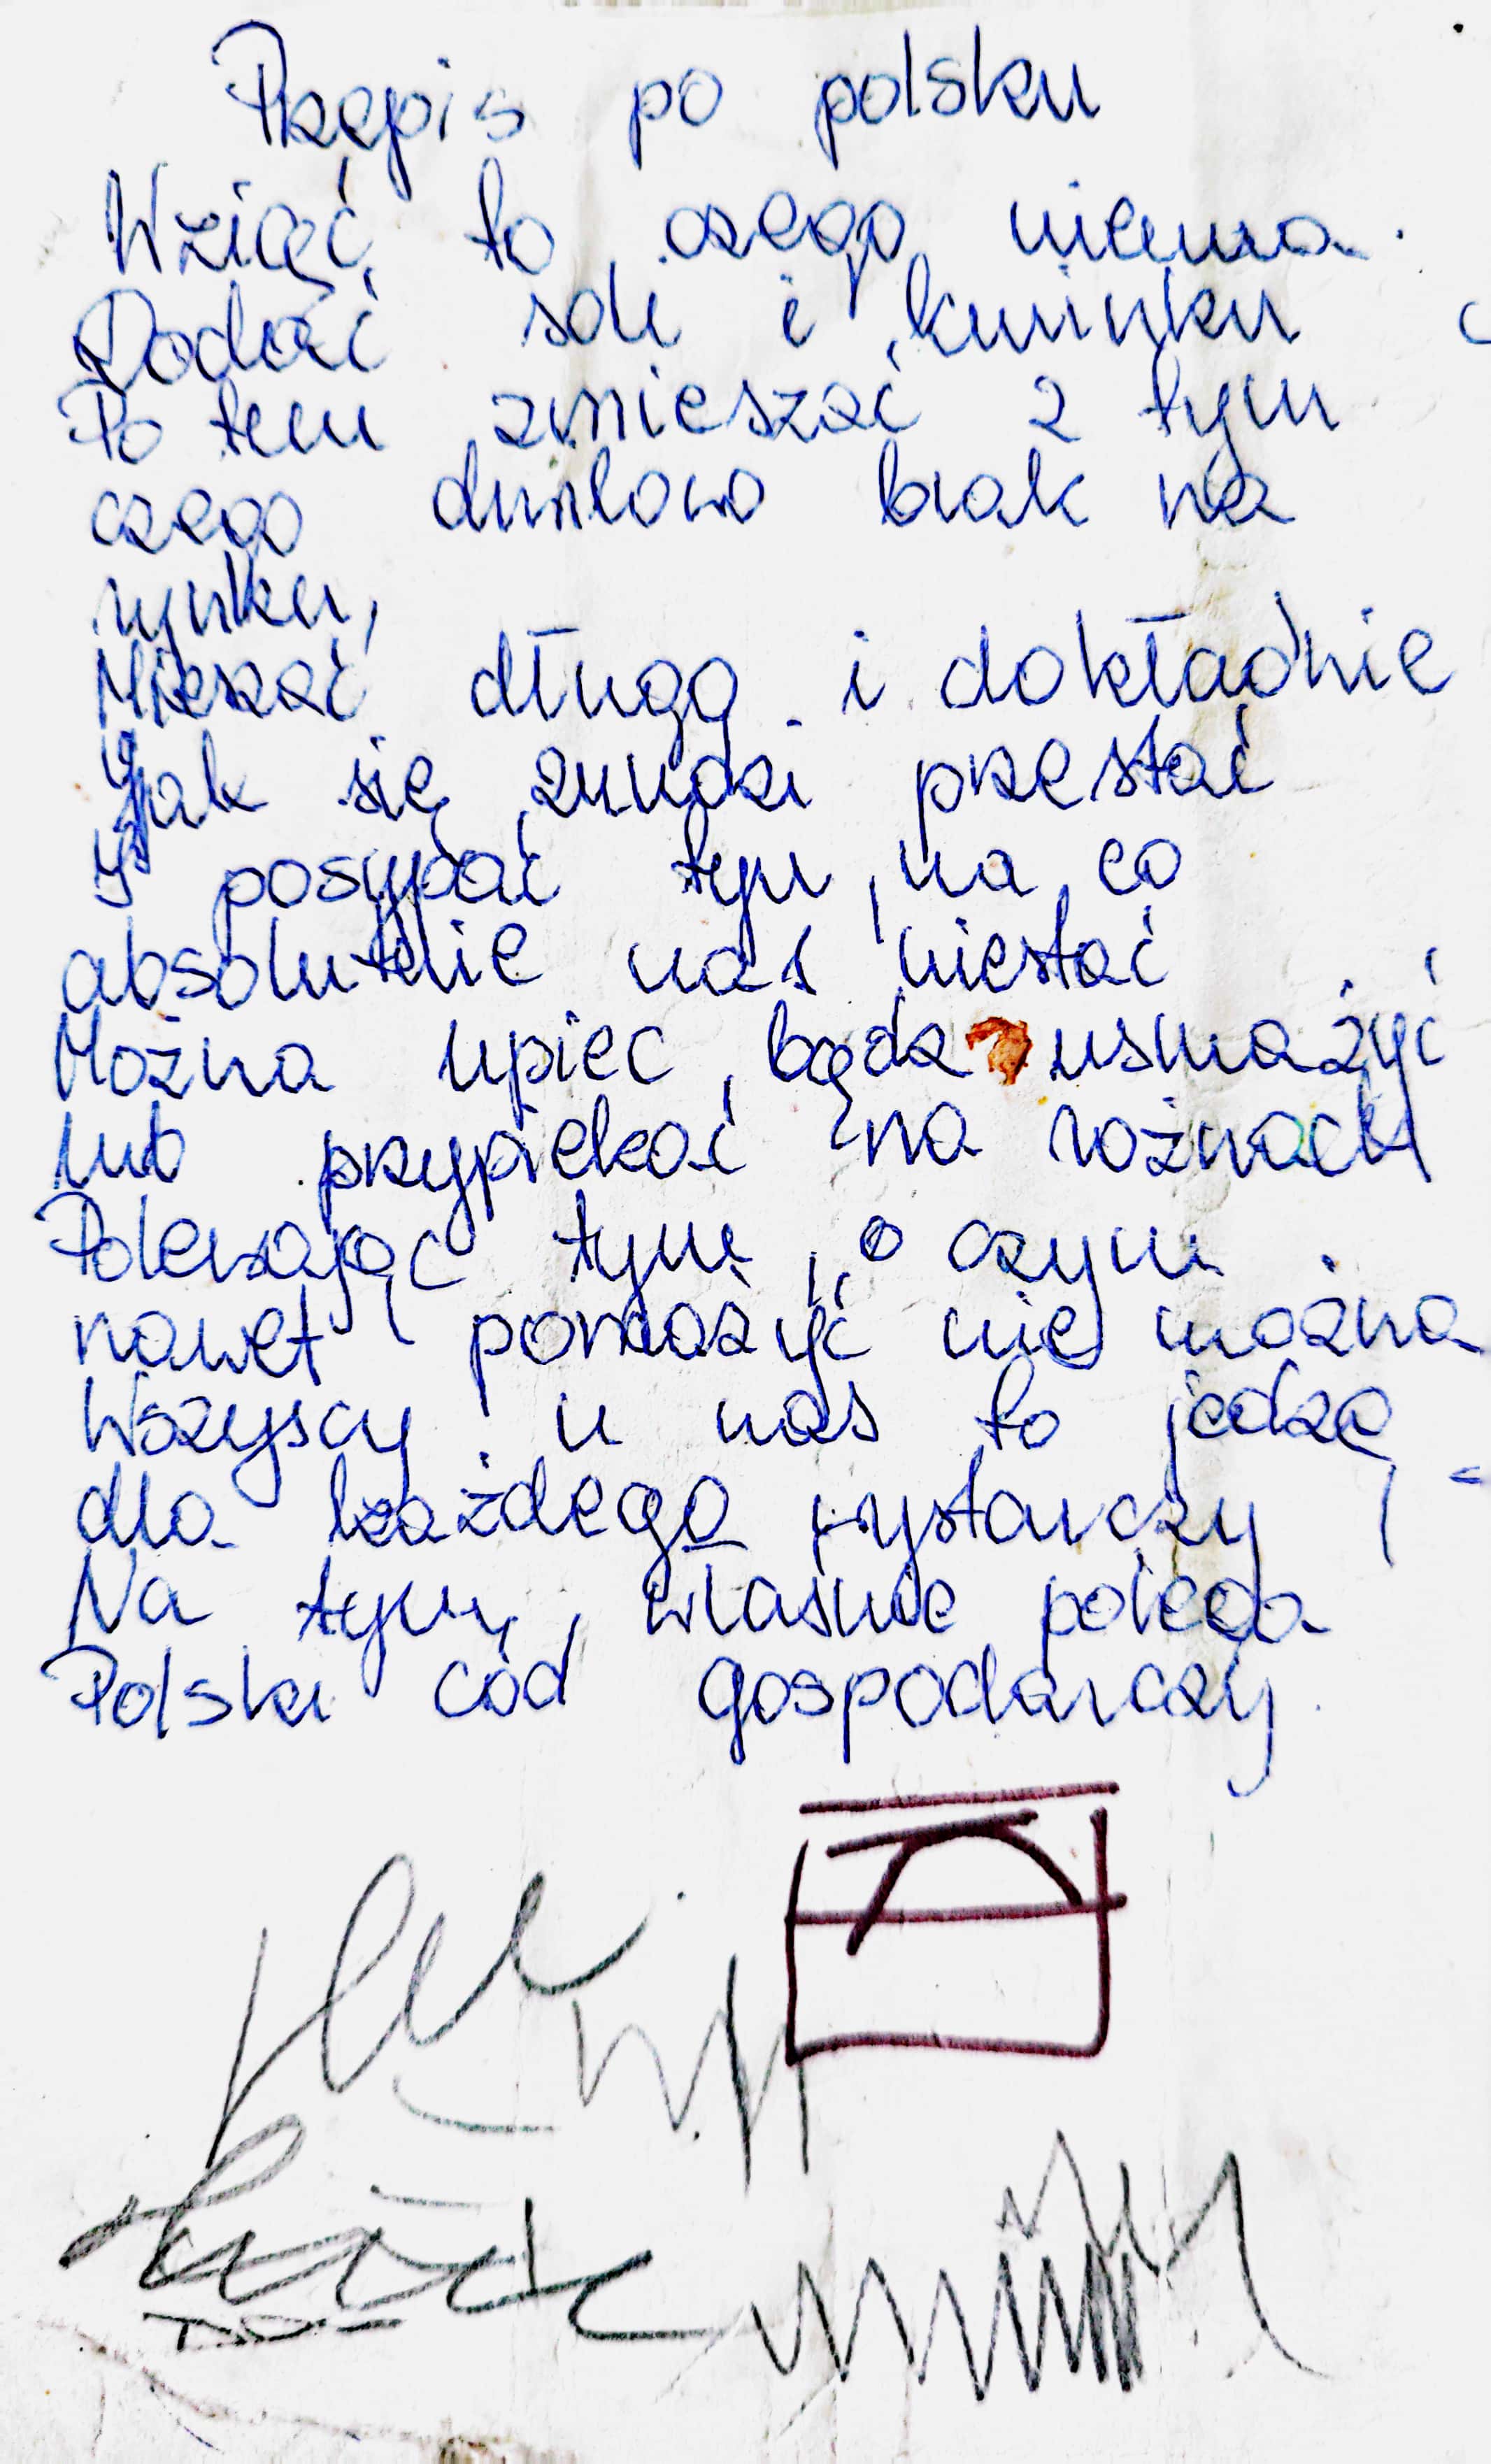 Przepis po polsku
Wziąć to, czego niema.
Dodać soli i kminku
Po tem zmieszać z tym
czego chwilowo brak na
rynku,
Mieszać długo i dokładnie
Jak się znudzi przestać
I posypać tym, na co
absolutnie nas niestać
Można upiec, bądz usmażyć
lub przypiekać na rożnach
Polewając tym, o czym
nawet pomażyć nie można
Wszyscy u nas to jedzą,
dla każdego wystarczy
Na tym, własnie polega
Polski cód gospodarczy.